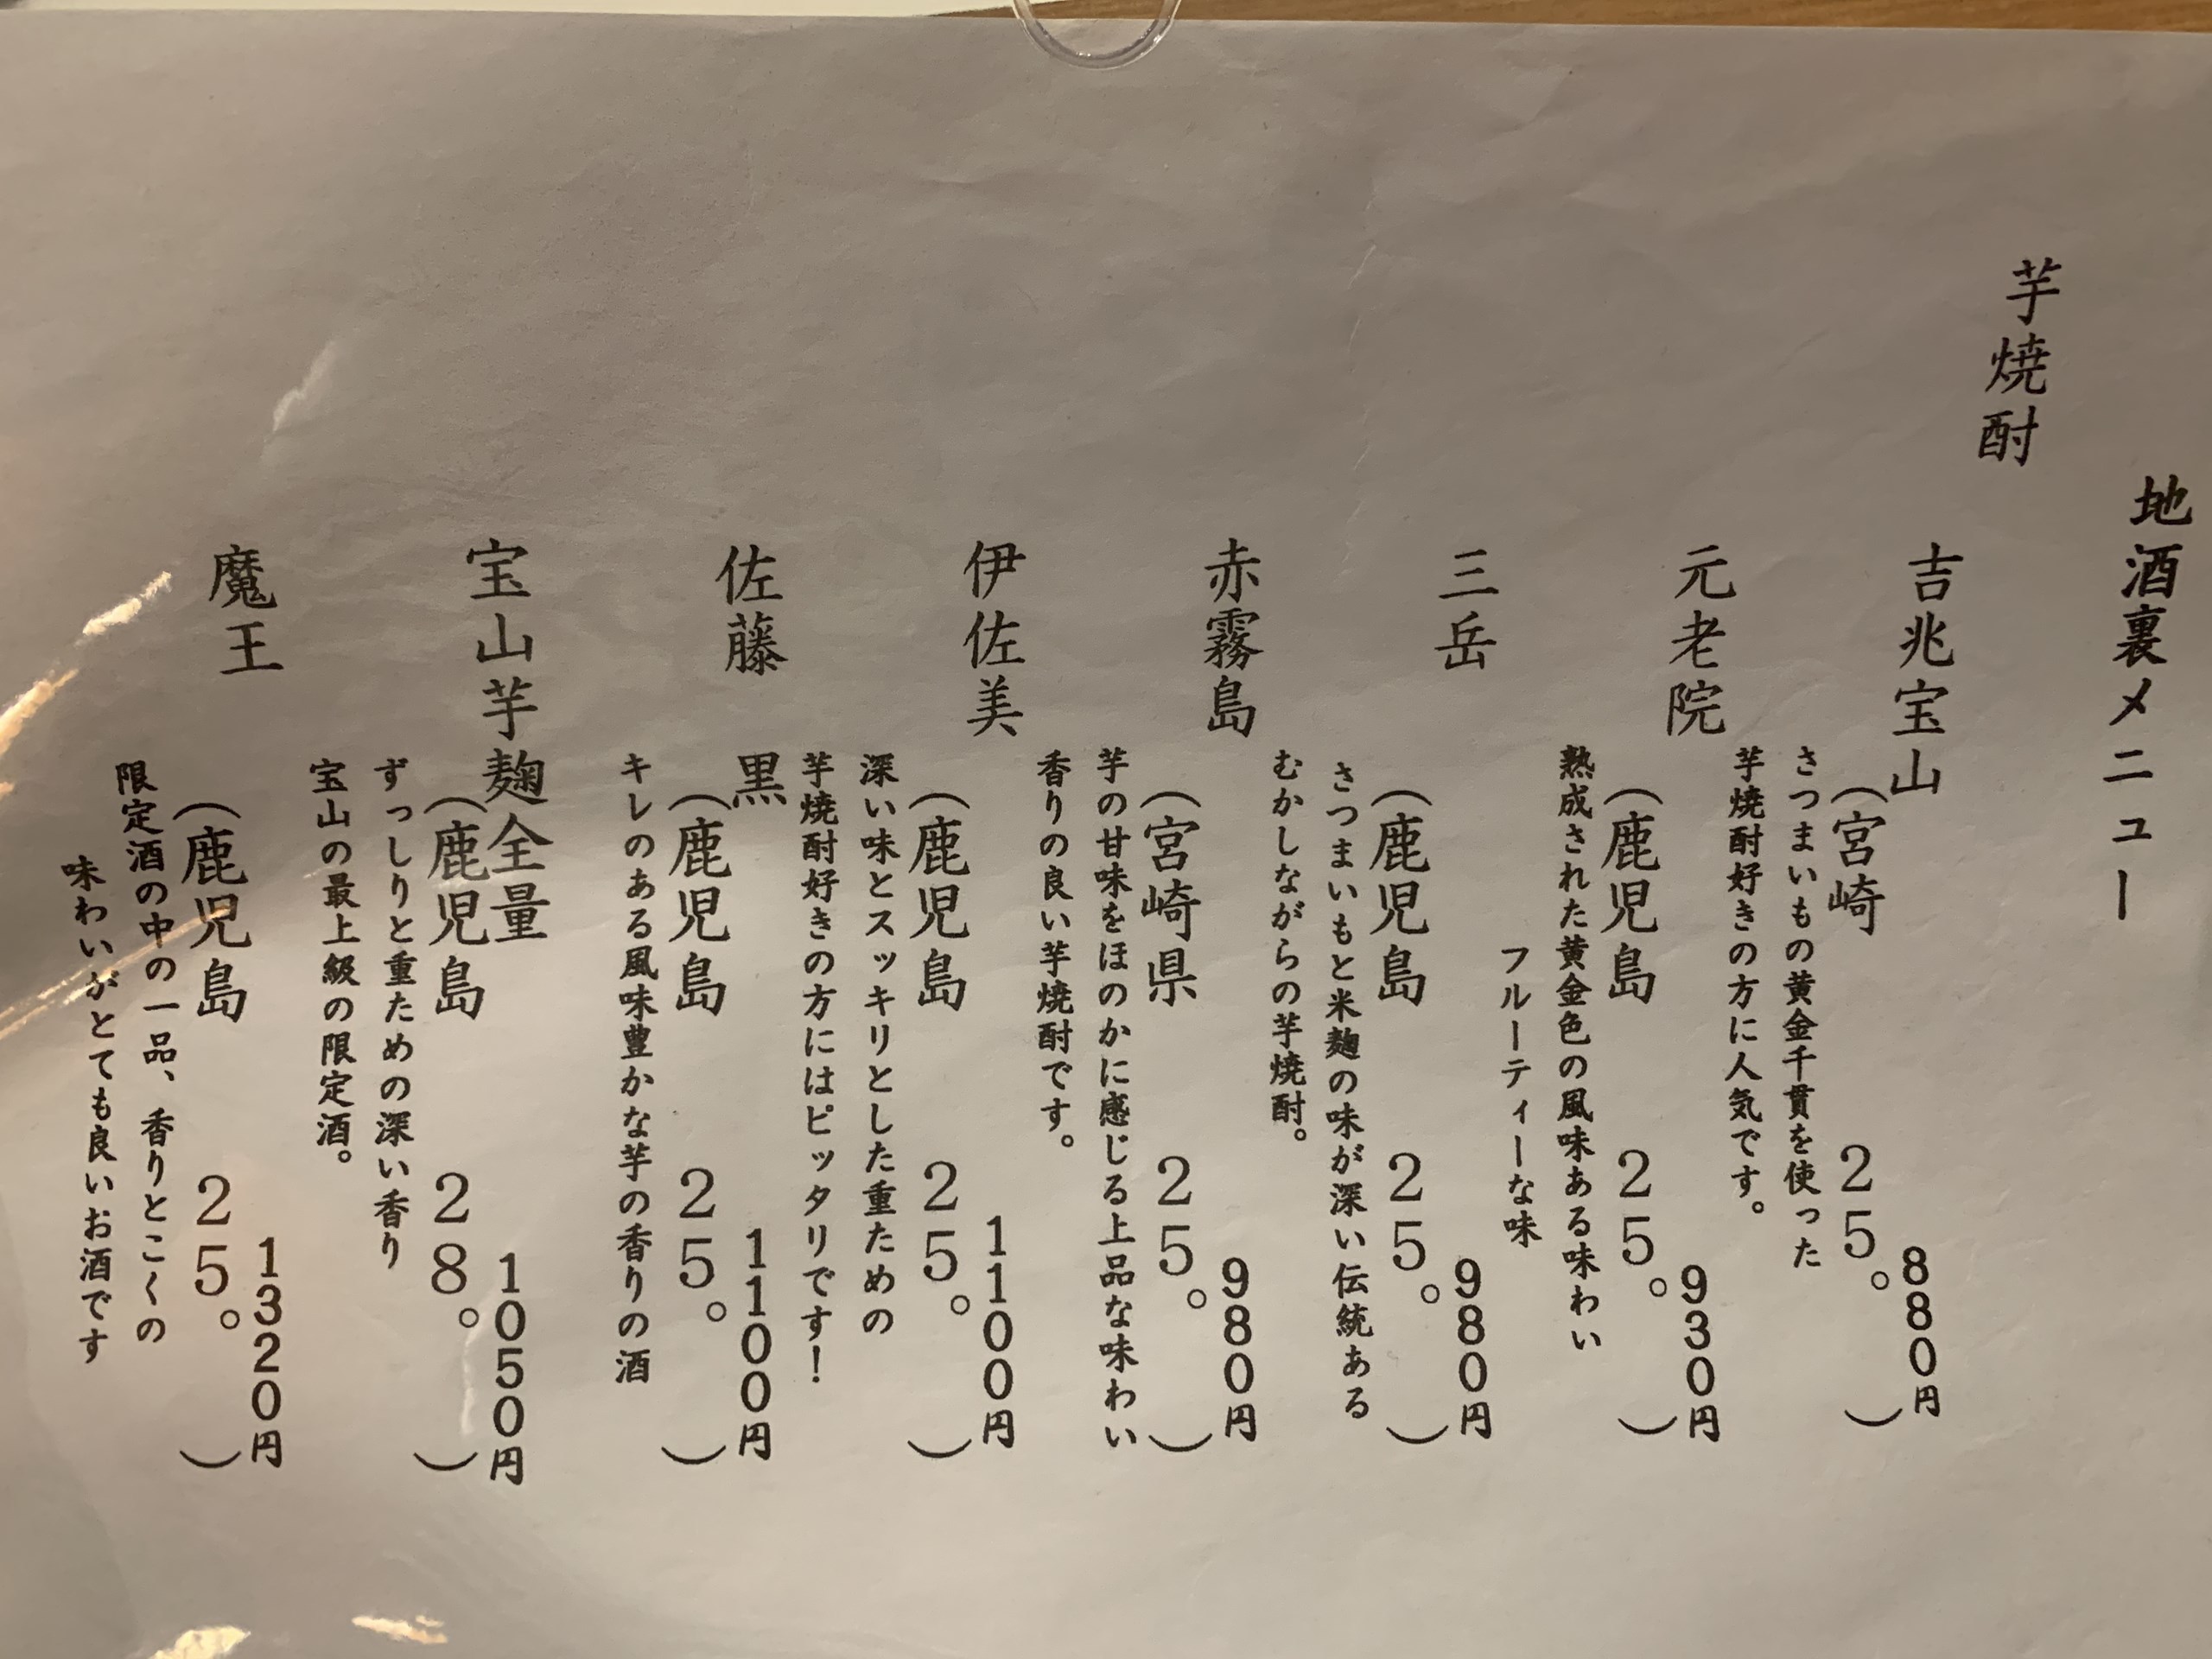 地酒裏メニュー
芋焼酎
吉兆宝山 880円
(宮崎 25°)
さつまいもの黄金千貫を使った
芋焼酎好きの方に人気です。
元老院 930円
(鹿児島 25°)
熟成された黄金色の風味ある味わい
フルーティーな味
三岳 980円
(鹿児島 25°)
さつまいもと米麹の味が深い伝統ある
むかしながらの芋焼酎。
赤霧島 980円
(宮崎県 25°)
芋の甘味をほのかに感じる上品な味わい
香りの良い芋焼酎です。
伊佐美 1100円
(鹿児島 25°)
深い味とスッキリとした重ための
芋焼酎好きの方にはピッタリです!
佐藤 黒 1100円
(鹿児島 25°)
キレのある風味豊かな芋の香りの酒
宝山芋麹全量 1050円
(鹿児島 28°)
ずっしりと重ための深い香り
宝山の最上級の限定酒。
魔王 1320円
(鹿児島 25°)
限定酒の中の一品、香りとこくの
味わいがとても良いお酒です